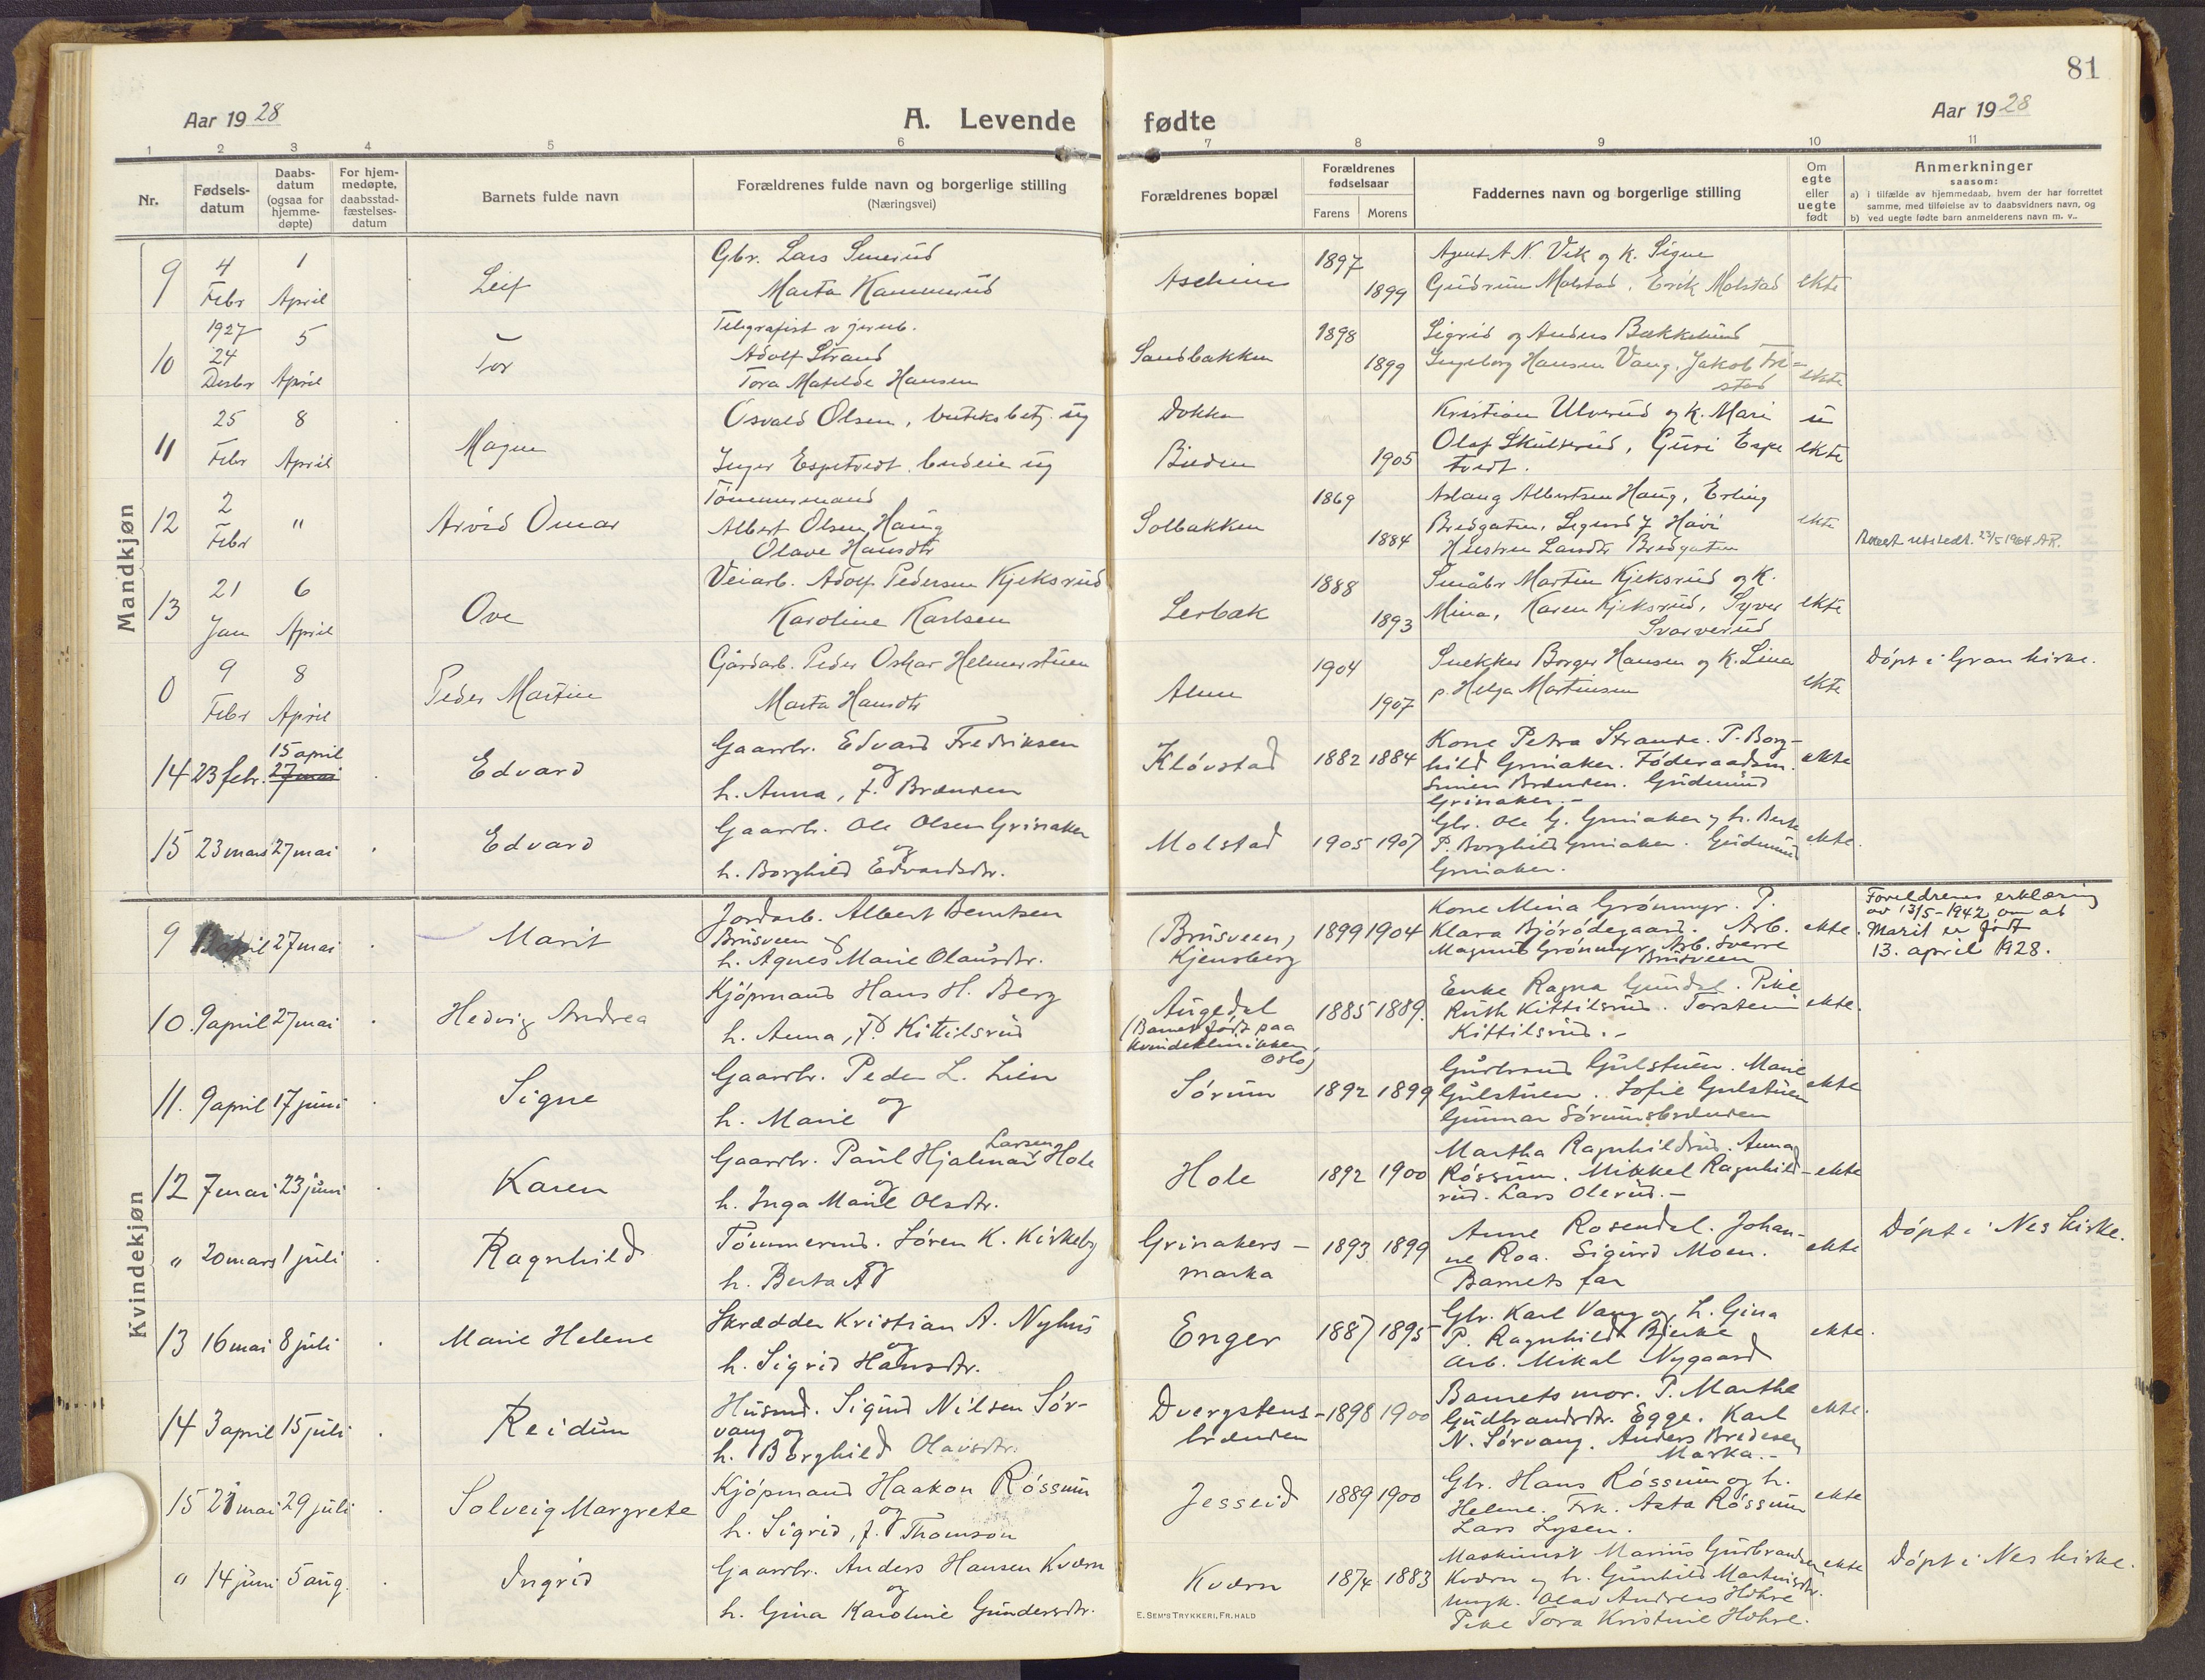 81
Aar 1928
A. Levende fødte
Aar 1928
1 2 3 4 5 6 7 8 9 10 11
Nr.
Fødsels-
datum
Daabs-
datum
(ogsaa for
hjemme-
døpte)
For hjem-
medøpte,
daabsstad-
fæstelses-
datum
Barnets fulde navn
Forældrenes fulde navn og borgerlige stilling
(Næringsvei)
Forældrenes bopæl
Forældrenes
fødselsaar
Farens Morens
Faddernes navn og borgerlige stilling
Om
egte
eller
uegte
født
Anmerkninger
saasom:
a) i tilfælde av hjemmedaab, hvem der har forrettet
samme, med tilføielse av to daabsvidners navn, og
b) ved uegte fødte barn anmelderens navn m. v..
Mandkjøn
9
4
Febr
1
April
Leif
Gbr. Lars Smerud
Marta Kammerud
Aschim
1897
1899
Agent A N. Vik og K. Signe
Gudrun Molstad, Erik Molstad
ekte
10
1927
24
Desbr
5
April
Tor
Telegrafist v jernb.
Adolf Strand
Tora Matilde Hansen
Sandbakken
1898
1899
Sigrid og Anders Bækkelund
Ingeborg Hansen Vang, Jakob Fre-
stad
ekte
11
25
Febr
8
April
Magne
Osvald Olsen, butiksbetj. ug
Inger Espetvedt, budeie ug
Dokka
Buden
1905
Kristian Ulverud og K. Mari
Olaf Skutterud, Guri Espe
tvedt.
u
ekte
12
2
Febr
"
Arvid Omar
Tømmermand
Albert Olsen Haug
Olave Hansdtr
Solbakken
1869
1884
Aslaug Albertsen Haug, Erling
Bredgaten, Sigurd J Høivi
Hustru Larsdtr Bredgaten
ekte
Attest utstedt. 23/5 1964 AR.
13
21
Jan
6
April
Ove
Veiarb. Adolf Pedersen Kjeksrud
Karoline Karlsen
Lerbæk
1888
1893
Småbr Martin Kjeksrud og K.
Mina, Karen Kjeksrud, Syver
Svarverud
ekte
0
9
Febr
8
April
Peder Martin
Gårdarb. Peder Oskar Helmerstuen
Marta Hansdtr
Almn
1904
1907
Snekker Borger Hansen og K. Lina
p. Helga Martinsen
ekte
Døpt i Gran kirke.
14 23 febr. 15 april
27 mai
Edvard
Gaardbr. Edvard Fredriksen
og
h. Anna, f. Brænden
Kløvstad
1882 1884
Kone Petra Strande. P. Borg-
hild Grinaker. Føderaadsm.
Simen Brænden. Gudmund
Grinaker.-
ekte
15 23 mars 27 mai
Edvard
Gaardbr. Ole Olsen Grinaker
og
h. Borghild Edvardsdtr.
Molstad
1905 1907
Gbr. Ole G. Grinaker og h. Berte
P. Borghild Grinaker. Gudmund
Grinaker.
ekte.
Kvindekjøn
9 april 27 mai
Marit
Jordarb. Albert Berntsen
Brusveen og
h. Agnes Marie Olausdtr.
(Brusveen)
Kjensberg
1899 1904
Kone Mina Grønmyr. P.
Klara Bjørødegaard. Arb.
Magnus Grønmyr, Arb. Sverre
Brusveen
ekte.
Foreldrenes erklæring
av 13/5-1942 om at
Marit er født
13. april 1928.
10. 9 april 27 mai
Hedvig Andrea
Kjøpmand Hans H. Berg
og
h. Anna, f. Kittilsrud
Augedal
(Barnet født paa
kvindeklinikken,
Oslo)
1885 1889.
Enke Ragna Gundal. Pike
Ruth Kittilsrud. Torstein
Kittilsrud.-
ekte.
11. 9 april 17 juni
Signe
Gaardbr. Peder L. Lien
og
h. Marie
Sørum
1892 1899
Gudbrand Gulstuen. Marie
Gulstuen. Sofie Gulstuen
Gunnar Sørumsbrænden
ekte
12 7 mai 23 juni
Karen
Gaardbr. Paul Hjalmar Larsen Hole
og
h. Inga Marie Olsdtr.
Hole
1892 1900
Martha Ragnhildrud. Anna
Røssum. Mikkel Ragnhild-
rud. Lars Olerud.-
ekte
" 20 mars 1 juli
Ragnhild
Tømmermd. Søren K. Kirkeby
og
h. Berta A
Grinakers-
marka
1893 1899
Anne Rosendal. Johan-
ne Roa. Sigurd Moen.
Barnets far
ekte
Døpt i Nes kirke.
13 16 mai 8 juli
Marie Helene
Skrædder Kristian A. Nyhus
og
h. Sigrid Hansdtr.
Enger
1887 1895
Gbr. Karl Vang og h. Gina
P. Ragnhild Bjerke
Arb. Mikal Nygaard
ekte.
14 3 april 15 juli
Reidun
Husmd. Sigurd Nilsen Sør-
vang og
h. Borghild Olavsdtr.
Dvergstens-
brænden
1898 1900
Barnets mor. P. Marthe
Gudbrandsdtr. Egge. Karl
N. Sørvang. Anders Bredesen
Marka.-
ekte.
15 21 mai 29 juli
Solveig Margrete
Kjøpmand Haakon Røssum
og
h. Sigrid, f. Thomson
Jesseid
1889 1900
Gbr. Hans Røssum og h.
Helene. Frk. Asta Røssum
Lars Lysen.
ekte
" 14 juni 5 aug.
Ingrid
Gaardbr. Anders Hansen Kværn
og
h. Gina Karoline Gundersdtr.
Kværn
1874 1883
Maskinist Marius Gudbrandsen
Kværn og h. Gunhild Martinsdtr.
Ungk. Olav Andreas Hohre
Pike Tora Kristine Hohre.
ekte
Døpt i Nes kirke.
E. SEM'S TRYKKERI, FR.HALD